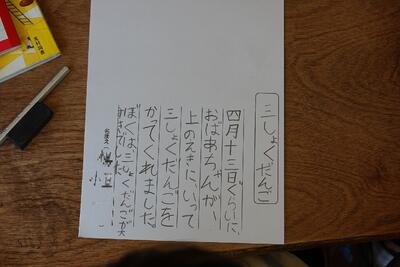 三しょくだんご
四月十三日ぐらいに、
おばあちゃんが、
上のえきに、いって
三しょくだんごを
かってくれました。
ぼくは、三しょくだんごが大
すきでした。